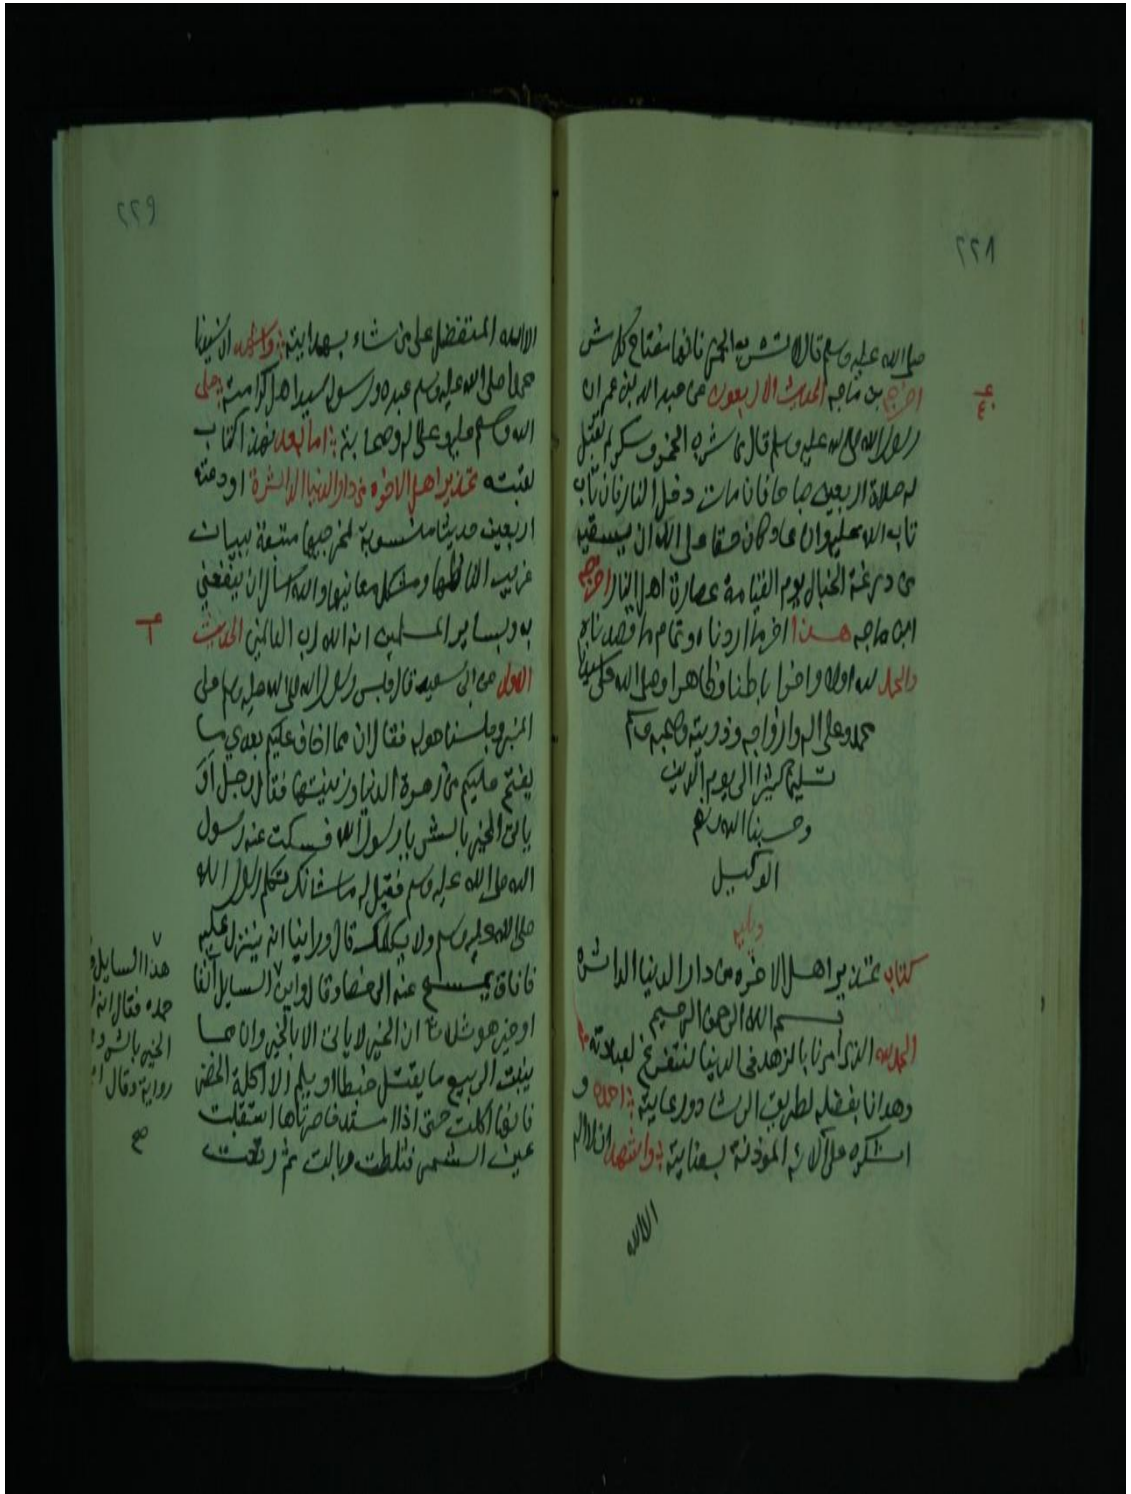 ٢٢٨
صلى الله عليه وسلم قال لا تشرب الخمر فانها مفتاح كل شر
اخرجه بن ماجه الحديث الاربعون عن عبد الله بن عمر ان
٤٠
رسول الله صلى الله عليه وسلم قال من شرب الخمر وسكر لم يقبل
له صلاة اربعين صباحا فان مات دخل النار فان تاب
تاب الله عليه وان عاد كان حقا على الله ان يسقيه
من ردغة الخبال يوم القيامة عصارة اهل النار اخرجه
ابن ماجه هذا اخر ما اردناه وتمام ما قصدناه
والحمد لله اولا واخرا باطنا وظاهرا وصلى الله على سيدنا
محمد وعلى اله وازواجه وذريته وصحبه وسلم
تسليما كثيرا الى يوم الدين
وحسبنا الله ونعم
الوكيل
ويليه
كتاب تحذير اهل الاخره من دار الدنيا الداثره
بسم الله الرحمن الرحيم
الحمد لله الذى امرنا بالزهد فى الدنيا لنتفرغ لعبادته
وهدانا بفضله لطريق الرشاد ورعايته احمده و
اشكره على آلائه المؤذنة بعنايته واشهد ان لا اله
الا الله
٢٢٩
الا الله المتفضل على من شاء بهدايته واشهد ان سيدنا
محمدا صلى الله عليه وسلم عبده ورسوله سيد اهل كرامته صلى
الله وسلم عليه وعلى اله وصحابته اما بعد فهذا كتاب
لقبته تحذير اهل الاخره من دار الدنيا الداثرة اودعته
اربعين حديثا منسوبة لمخرجيها متبعة ببيان
غريب الفاظها ومشكل معانيها والله اسأل ان ينفعني
به وبساير المسلمين انه الله رب العالمين الحديث
١
الاول عن ابى سعيد قال جلس رسول الله صلى الله عليه وسلم على
المنبر وجلسنا حوله فقال ان مما اخاف عليكم بعدي ما
يفتح عليكم من زهرة الدنيا وزينتها فقال رجل او
ياتى الخير بالشر يا رسول الله فسكت عنه رسول
الله صلى الله عليه وسلم فقيل له ما شانك تكلم رسول الله
صلى الله عليه وسلم ولا يكلمك قال وراينا انه ينزل عليه
فافاق يمسح عنه الرحضا وقال اين السايل آنفا
او خير هو ثلاثا ان الخير لا ياتى الا بالخير وان مما
ينبت الربيع ما يقتل حبطا او يلم الا اكلة الخضر
فانها اكلت حتى اذا امتد خاصرتاها استقبلت
عين الشمس فثلطت وبالت ثم رتعت
٧
هذا السايل و
حمده فقال انه ل
الخير بالشر و
رواية وقال ا
صح